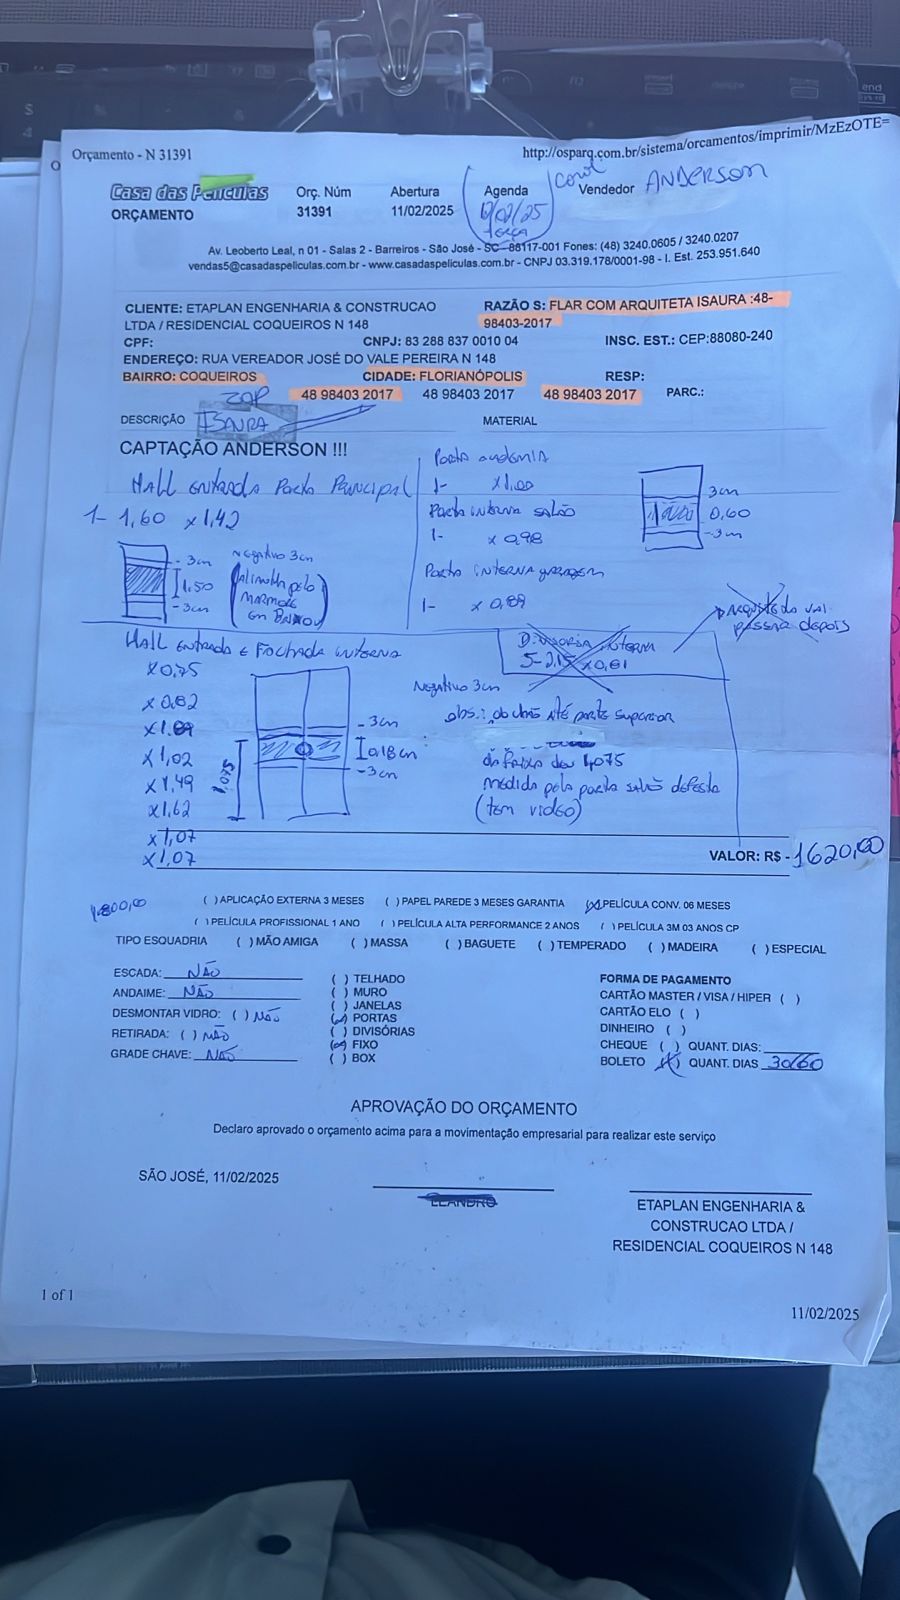 Orçamento - N 31391
http://osparq.com.br/sistema/orcamentos/imprimir/MzEzOTE=
Casa das Películas
ORÇAMENTO
Orç. Núm
31391
Abertura
11/02/2025
Agenda
/02/25
terça
Vendedor ANDERSON
Av. Leoberto Leal, n 01 - Salas 2 - Barreiros - São José - SC - 88117-001 Fones: (48) 3240.0605 / 3240.0207
vendas5@casadaspeliculas.com.br - www.casadaspeliculas.com.br - CNPJ 03.319.178/0001-98 - I. Est. 253.951.640
CLIENTE: ETAPLAN ENGENHARIA & CONSTRUCAO
LTDA / RESIDENCIAL COQUEIROS N 148
RAZÃO S: FLAR COM ARQUITETA ISAURA :48-
98403-2017
CPF:
CNPJ: 83 288 837 0010 04
INSC. EST.: CEP:88080-240
ENDEREÇO: RUA VEREADOR JOSÉ DO VALE PEREIRA N 148
BAIRRO: COQUEIROS
CIDADE: FLORIANÓPOLIS
RESP:
ZAP
48 98403 2017
48 98403 2017
48 98403 2017
PARC.:
DESCRIÇÃO
ISAURA
MATERIAL
CAPTAÇÃO ANDERSON !!!
HALL ENTRADA PORTA PRINCIPAL
1- 1,60 x 1,42
- 3cm
1,50
- 3cm
NEGATIVO 3cm
(ALINHADA PELO
MARMORE
EM BAIXO)
1- x1,00
PORTA INTERNA SALÃO
1- x 0,98
PORTA INTERNA GARAGEM
1- x 0,89
3cm
0,60
-3cm
ARQUITETA VAI
PASSAR DEPOIS
DIVISORIA INTERNA
5-2,15 x0,61
HALL ENTRADA E FACHADA INTERNA
x0,75
x0,82
x1,02
x1,49
x1,62
x1,07
x1,07
1,075
- 3cm
0,18cm
- 3cm
NEGATIVO 3cm
obs.: do chão ATÉ parte superior
da faixa deu 1,075
medida pela porta salão de festa
(tem video)
VALOR: R$ - 1620,00
1.800,00
( ) APLICAÇÃO EXTERNA 3 MESES ( ) PAPEL PAREDE 3 MESES GARANTIA (x) PELÍCULA CONV. 06 MESES
( ) PELÍCULA PROFISSIONAL 1 ANO ( ) PELÍCULA ALTA PERFORMANCE 2 ANOS ( ) PELÍCULA 3M 03 ANOS CP
TIPO ESQUADRIA ( ) MÃO AMIGA ( ) MASSA ( ) BAGUETE ( ) TEMPERADO ( ) MADEIRA ( ) ESPECIAL
ESCADA: NÃO
ANDAIME: NÃO
DESMONTAR VIDRO: ( ) NÃO
RETIRADA: ( ) NÃO
GRADE CHAVE: NÃO
( ) TELHADO
( ) MURO
( ) JANELAS
(x) PORTAS
( ) DIVISÓRIAS
(x) FIXO
( ) BOX
FORMA DE PAGAMENTO
CARTÃO MASTER / VISA / HIPER ( )
CARTÃO ELO ( )
DINHEIRO ( )
CHEQUE ( ) QUANT. DIAS:
BOLETO (x) QUANT. DIAS 30/60
APROVAÇÃO DO ORÇAMENTO
Declaro aprovado o orçamento acima para a movimentação empresarial para realizar este serviço
SÃO JOSÉ, 11/02/2025
LEANDRO
ETAPLAN ENGENHARIA &
CONSTRUCAO LTDA /
RESIDENCIAL COQUEIROS N 148
1 of 1
11/02/2025